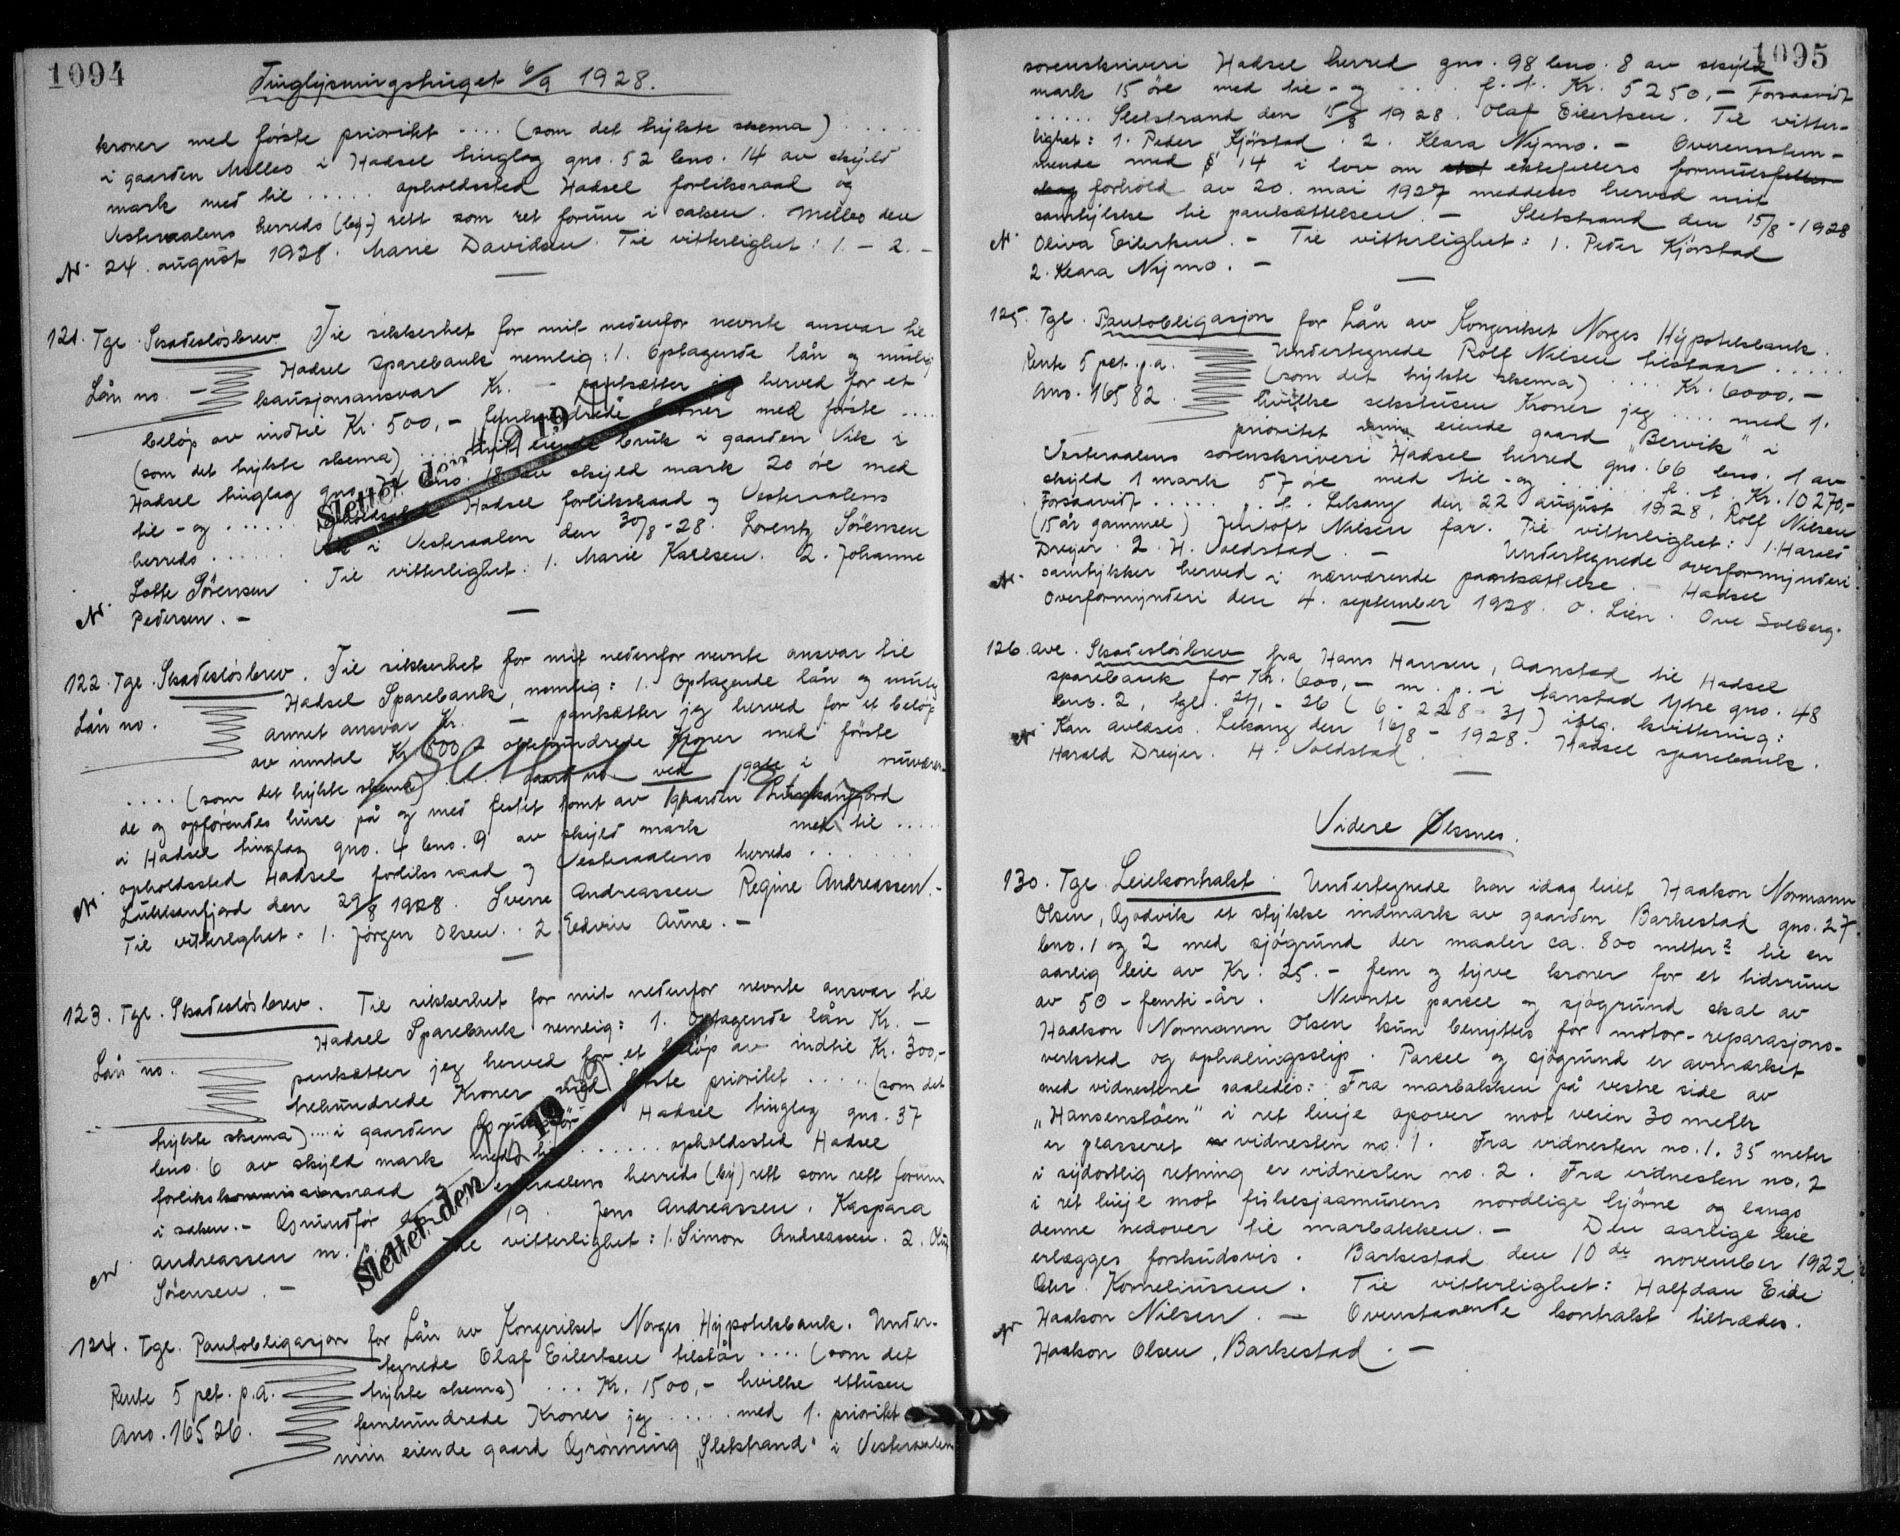 1094
Tinglysningstinget 6/9 1928.
kroner med første prioritet .... (som det trykte skema) .....
i gaarden Melbo i Hadsel tinglag gno. 52 bno. 14 av skyld
mark med til ..... opholdssted Hadsel forliksraad og
Vesteraalens herreds (by-) rett som ret forum i saken. Melbo den
N. 24. august 1928. Marie Davidsen. Til vitterlighet: 1. - 2. -
121. Tgl. Skadesløsbrev Til sikkerhet for mit nedenfor nevnte ansvar til
Hadsel Sparebank nemlig: 1. Optagende lån og mulig
Lån no. kausjonsansvar Kr. - pantsætter jeg herved for et
beløp av indtil Kr. 500,- femhundrede kroner med første ....
(som det trykte skema) ..... eiende bruk i gaarden Vik i
Hadsel tinglag gno. bno. 18 av skyld mark 20 øre med
til - og ...... opholdssted Hadsel forliksraad og Vesteraalens
herreds ...... Vik i Vesteraalen den 30/8-28. Lorentz Sørensen
Lotte Sørensen. Til vitterlighet: 1. Marie Karlsen. 2. Johanne
N. Pedersen. -
Slettet den 19
122. Tgl. Skadesløsbrev. Til sikkerhet for mit nedenfor nevnte ansvar til
Hadsel Sparebank, nemlig: 1. Optagende lån og mulig
Lån no. annet ansvar Kr. - pantsætter jeg herved for et beløp
av inntil Kr. 800,- ottehundrede Kroner med første
.... (som det trykte skema) ... gaard no. ved gate i nuværen-
de og opførendes huse på og med festet tomt av gaarden
i Hadsel tinglag gno. 4 bno. 9 av skyld mark med til .....
opholdssted Hadsel forliksraad og Vesteraalens herreds .......
N. den 29/8 1928. Sverre Andreassen Regine Andreassen. -
Til vitterlighet: 1. Jørgen Olsen. 2 Edvin Aune. -
Slettet
123. Tgl. Skadesløsbrev. Til sikkerhet for mit nedenfor nevnte ansvar til
Hadsel Sparebank nemlig: 1. Optagende lån Kr. -
Lån no. pantsætter jeg herved for et beløp av indtil Kr. 300,-
trehundrede Kroner med første prioritet ..... (som det
trykte skema) .... i gaarden Grundfør i Hadsel tinglag gno. 37
bno. 6 av skyld mark med til ...... opholdssted Hadsel
forlikskommissionsraad og Vesteraalens herreds (by) rett som rett forum
i saken. - Grundfør den 19 . Jens Andreassen. Kaspara
Andreassen m. Til vitterlighet: 1. Simon Andreassen. 2.
N. Sørensen. -
Slettet den 19
124. Tgl. Pantobligasjon for Lån av Kongeriket Norges Hypotekbank. Under-
tegnede Olaf Eilertsen tilstår .... (som det
Rente 5 pct. p.a. trykte skema) ... Kr. 1500,- hvilke ettusen
Ano. 16526. femhundrede Kroner jeg ..... med 1. prioritet
min eiende gaard Grønning "Sletstrand" i Vesteraalens
1095
sorenskriveri Hadsel herred gno. 98 bno. 8 av skyld
mark 15 øre med til - og ..... f. t. Kr. 5250,- Forsaavidt
..... Sletstrand den 15/8 1928. Olaf Eilertsen. Til vitter-
lighet: 1. Peder Kjørstad. 2. Klara Nymo. - Overensstem-
mende med § 14 i lov om ektefellers formues
forhold av 20. mai 1927 meddeles herved mit
samtykke til pantsættelsen. - Sletstrand den 15/8 - 1928
N. Oliva Eilertsen. - Til vitterlighet: 1. Peder Kjørstad
2. Klara Nymo. -
125. Tgl. Pantobligasjon for Lån av Kongeriket Norges Hypotekbank.
Undertegnede Rolf Nilsen tilstaar .....
Rente 5 pct. p.a. (som det trykte skema) .... Kr. 6000,-
Ano. 16582. hvilke sekstusen Kroner jeg .... med 1.
prioritet min eiende gaard "Bervik" i
Vesteraalens sorenskriveri Hadsel herred gno. 66 bno. 1 av
skyld 1 mark 57 øre med til - og ...... f. t. Kr. 10270,-
Forsaavidt ..... f. t. Leksang den 22 august 1928. Rolf Nilsen
(15 år gammel) Jentoft Nilsen far. Til vitterlighet: 1. Harald
Dreyer. 2. H. Voldstad. - Undertegnede overformynderi
N. samtykker herved i nærværende pantsættelse. - Hadsel
Overformynderi den 4. september 1928. O. Lien. Ove Solberg.
126. avl. Skadesløsbrev fra Hans Hansen, Aanstad til Hadsel
sparebank for Kr. 600,- m. p. i Aanstad Ytre gno. 48
bno. 2, tgl. 26 (6 - 228 - 31) iflg. kvittering:
N. Kan avlæses. Leksang den 16/8 - 1928. Hadsel sparebank.
Harald Dreyer. H. Voldstad.
Videre Øksnes.
130. Tgl. Leiekontrakt. Undertegnede har idag leiet Haakon Normann
Olsen, Godvik et stykke indmark av gaarden Barkestad gno. 27
bno. 1 og 2 med sjøgrund der maaler ca. 800 meter² til en
aarlig leie av Kr. 25. - fem og tyve kroner for et tidsrum
av 50 - femti - år. Nevnte parsel og sjøgrund skal av
Haakon Normann Olsen kun benyttes for motor-reparasjons-
verksted og ophalingsslip. Parsel og sjøgrund er avmerket
med vidnestene saaledes: Fra marbakken på vestre side av
"Hansenstøen" i ret linje opover mot veien 30 meter
er plasseret vidnesten no. 1. Fra vidnesten no. 1. 35 meter
i sydostlig retning er vidnesten no. 2. Fra vidnesten no. 2
i ret linje mot fiskesjaamurens nordlige hjørne og langs
denne nedover til marbakken. - Den aarlige leie
erlægges forskudsvis. Barkestad den 10de november 1922.
Chr. Korneliussen. Til vitterlighet: Halfdan Eide
Haakon Nilsen. - Ovenstaaende kontrakt tiltrædes.
N. Haakon Olsen, Barkestad. -